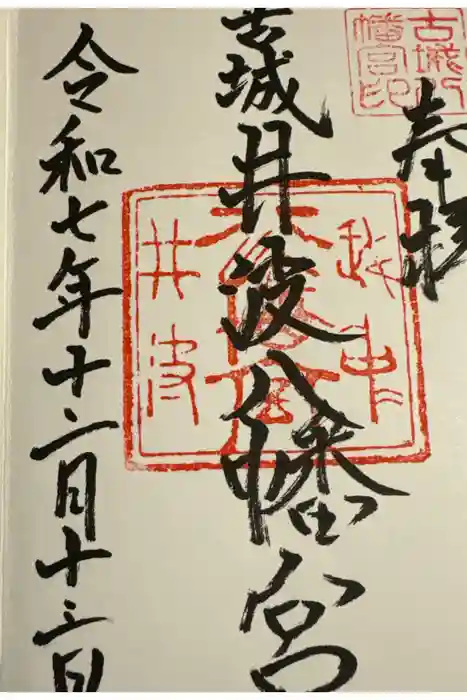 奉拝
古城
井波八幡宮
令和七年十二月十三日
古城
八幡宮印
越中
井波